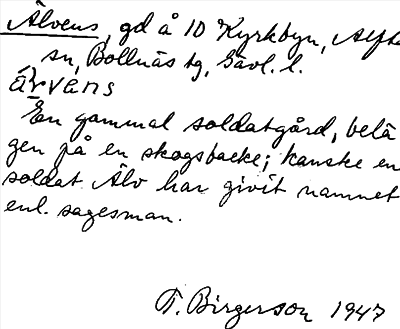 Älvens, gd å 10 Kyrkbyn, Alfta
sn, Bollnäs tg, Gävl. l.
ä̀rvens
En gammal soldatgård, belä
gen på en skogsbacke; kanske en
soldat Älv har givit namnet
enl. sagesman.
T. Birgerson 1947